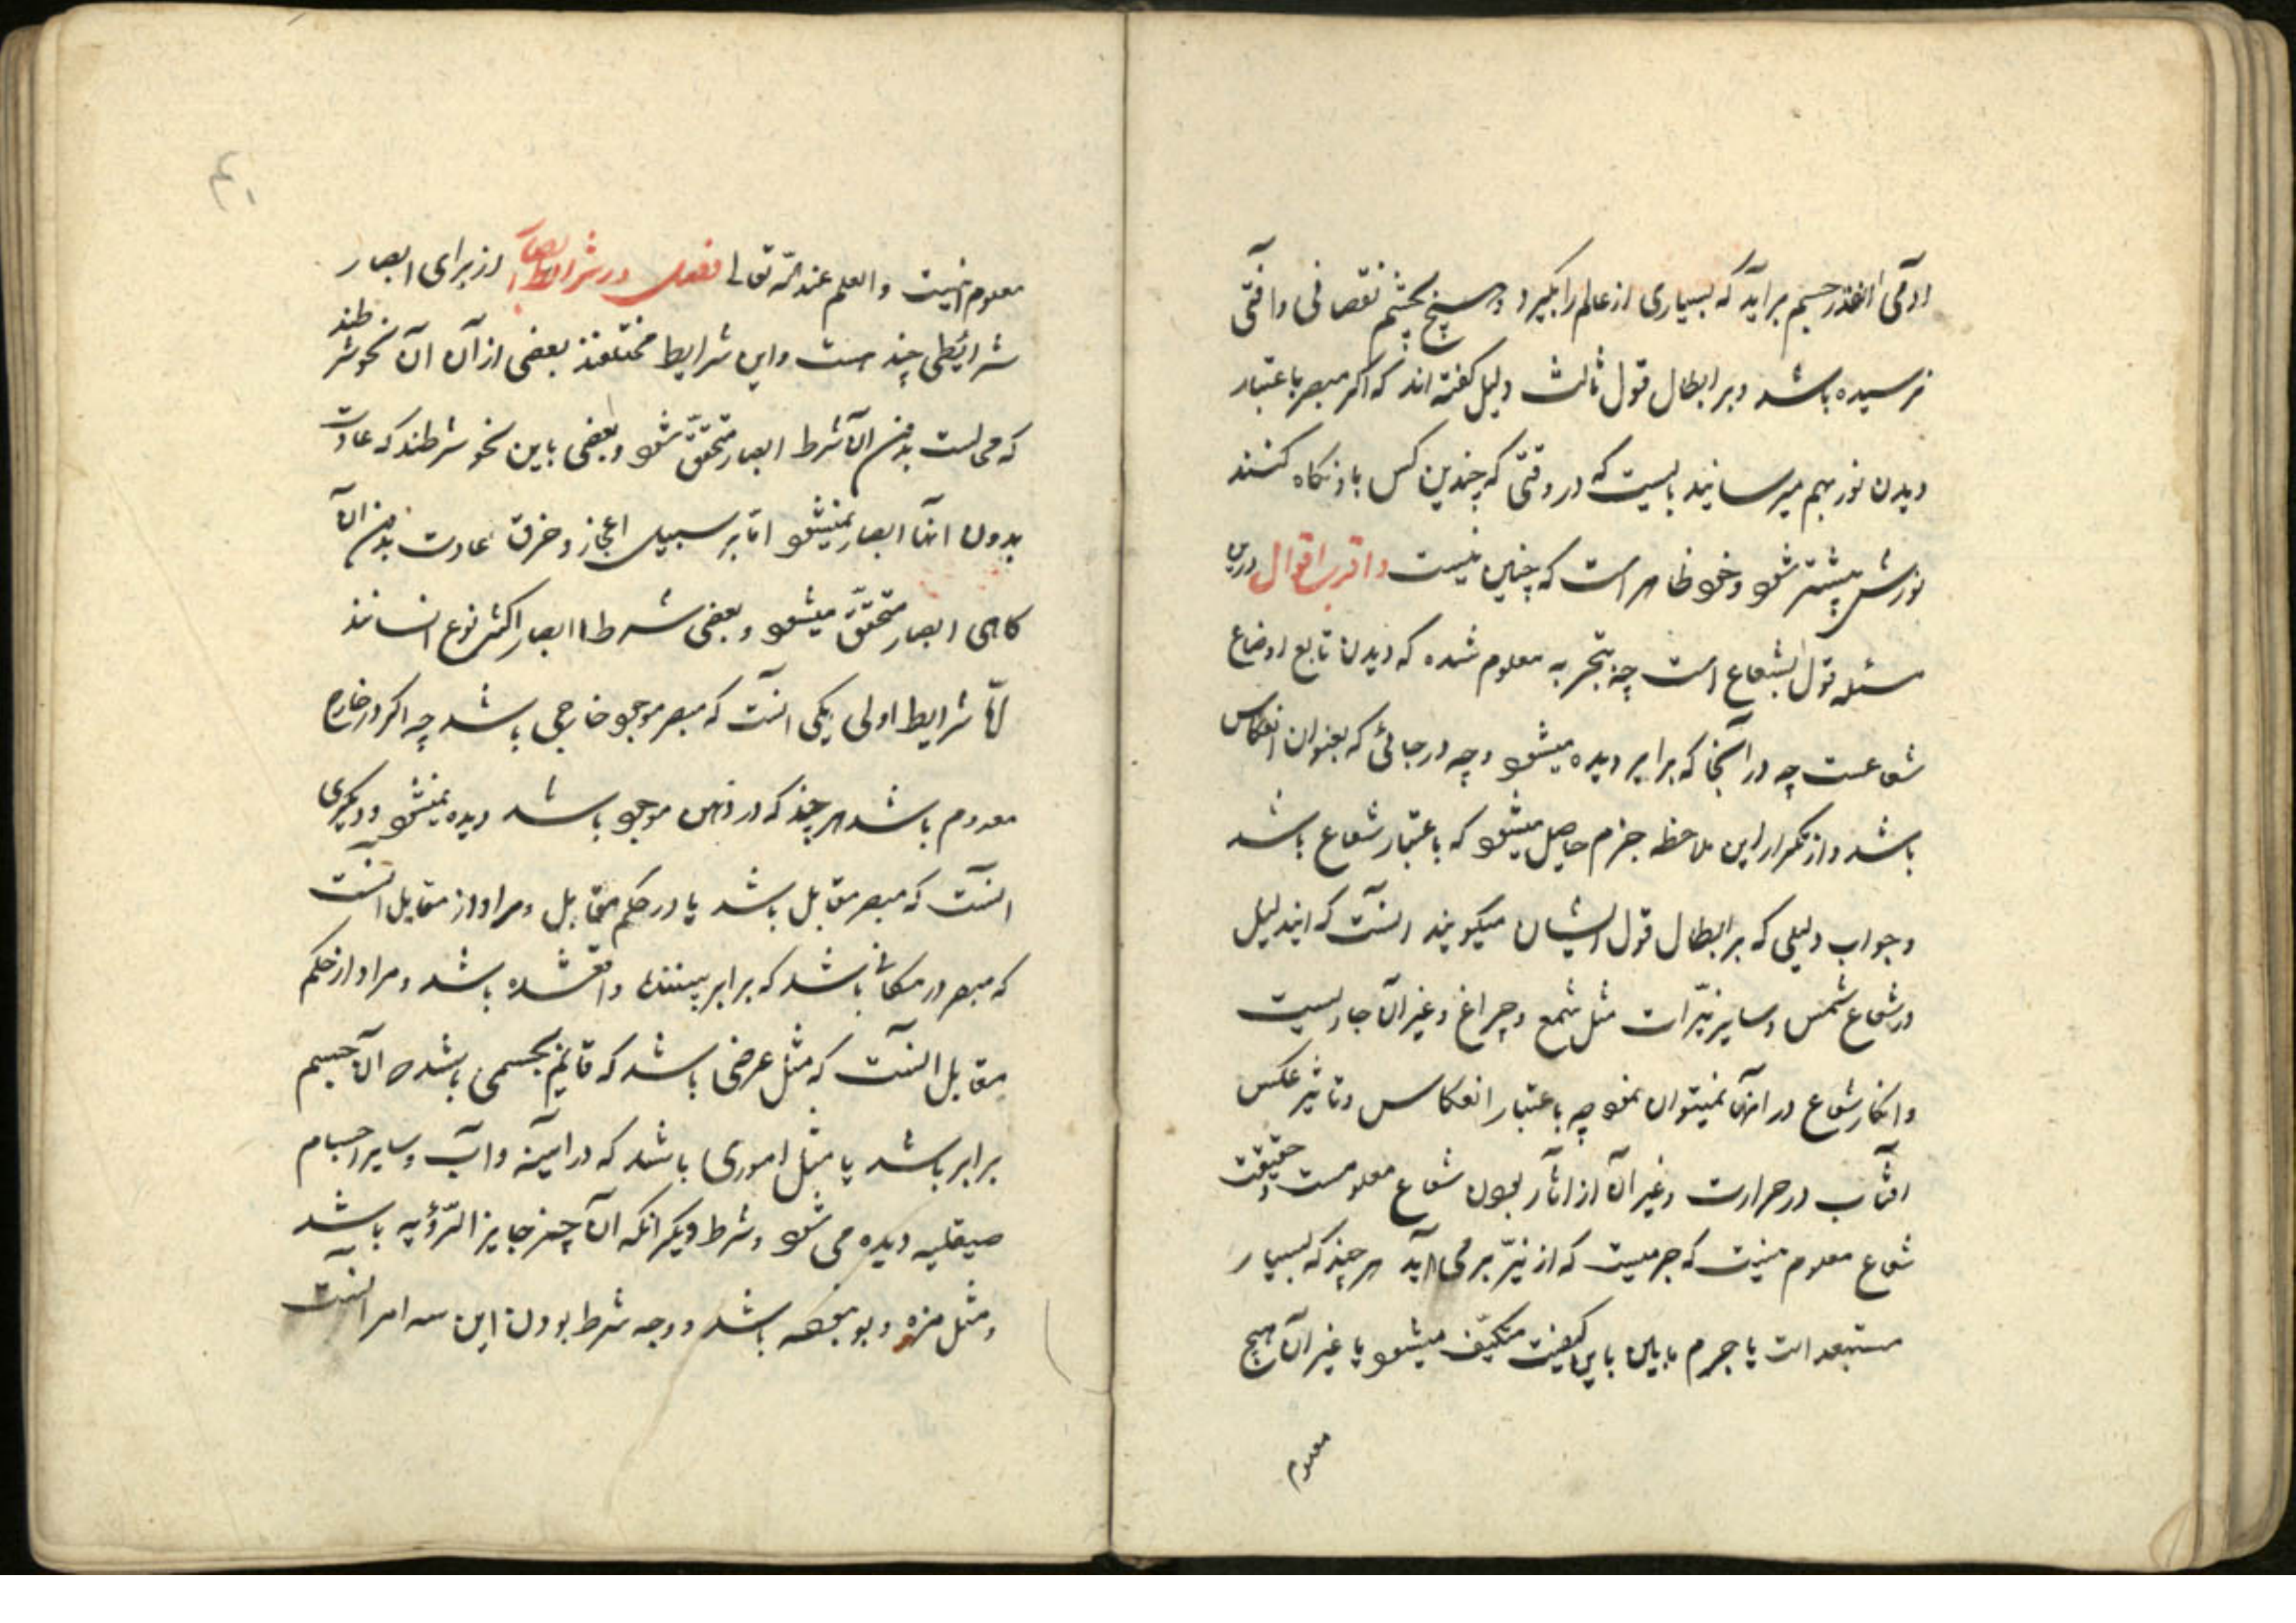 آدمی آنقدر جسم برآید که بسیاری از عالم را بگیرد و هیچ بچشم نقصانی و آفتی
نرسیده باشد و بر ابطال قول ثالث دلیل گفته‌اند که اگر مبصر باعتبار
دیدن نور بهم میرسانید بایست که در وقتی که چندین کس باو نگاه کنند
نورش بیشتر شود و خود ظاهر است که چنین نیست و اقرب اقوال درین
مسئله قول بشعاع است چه بتجربه معلوم شده که دیدن تابع اوضاع
شعاعست چه در آنجا که برابر دیده میشود و چه در جائی که بعنوان انعکاس
باشد و از تکرار این ملاحظه جزم حاصل میشود که باعتبار شعاع باشد
و جواب دلیلی که بر ابطال قول ایشان میگویند آنست که ایندلیل
در شعاع شمس و سایر نیّرات مثل شمع و چراغ و غیر آن جاریست
و انکار شعاع در آنها نمیتوان نمود چه باعتبار انعکاس و تاثیر عکس
آفتاب در حرارت و غیر آن از آثار بودن شعاع معلومست و حقیقت
شعاع معلوم نیست که جرمیست که از نیّر بر می‌آید هر چند که بسیار
مستبعد است یا جرم مابین باین کیفیت متکیّف میشود یا غیر آن هیچ
معلوم
۴۱
معلوم نیست و العلم عند الله تعالی فصل در شرایط ابصار از برای ابصار
شرایطی چند هست و این شرایط مختلفند بعضی از آن آن نحو شرطند
که محالست بدون آن شرط ابصار متحقّق شود و بعضی باین نحو شرطند که عادت
بدون آنها ابصار نمیشود امّا بر سبیل اعجاز و خرق عادت بدون آن
گاهی ابصار متحقّق میشود و بعضی شرط ابصار اکثر نوع انسانند
امّا شرایط اولی یکی آنست که مبصر موجود خارجی باشد چه اگر در خارج
معدوم باشد هر چند که در ذهن موجود باشد دیده نمیشود و دیگری
آنست که مبصر مقابل باشد یا در حکم مقابل و مراد از مقابل آنست
که مبصر در مکانی باشد که برابر بیننده واقع شده باشد و مراد از حکم
مقابل آنست که مثل عرضی باشد که قایم بجسمی باشد که آن جسم
برابر باشد یا مثل اموری باشد که در آیینه و آب و سایر اجسام
صیقلیه دیده می شود و شرط دیگر آنکه آن چیز جایز الرّؤیه باشد
و مثل مزه و بو نبوده باشد و وجه شرط بودن این سه امر آنست